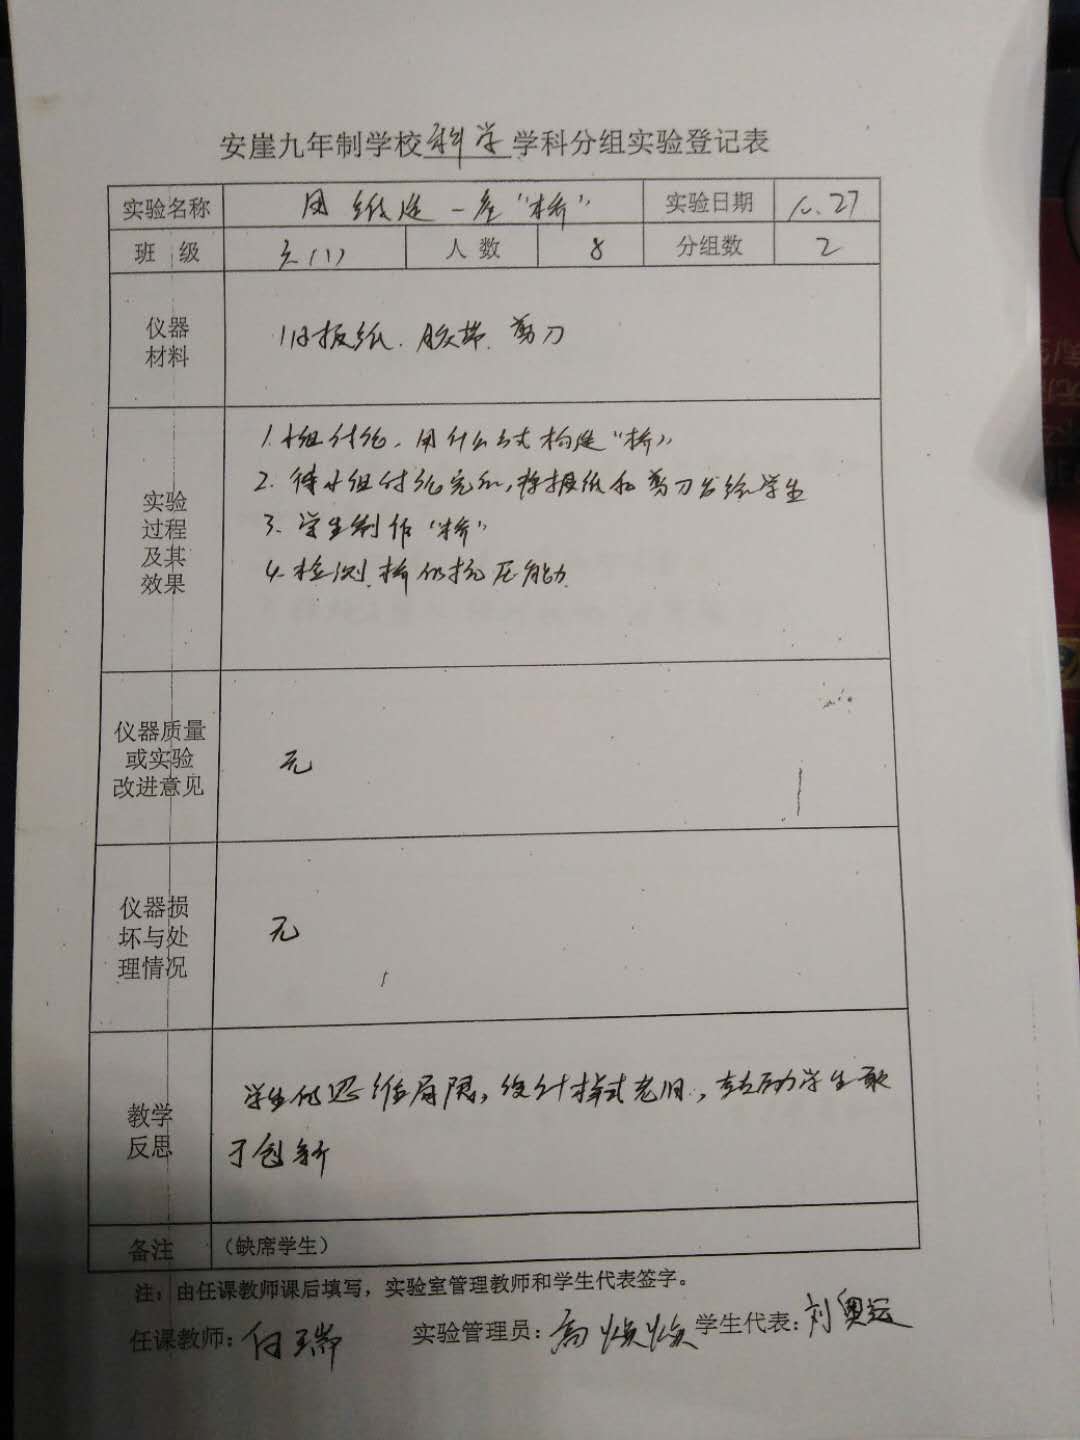 安崖九年制学校科学学科分组实验登记表
实验名称 用纸造一座“桥” 实验日期 10.27
班 级 六(1) 人数 8 分组数 2
仪器
材料
旧报纸、胶带、剪刀
实验
过程
及其
效果
1.小组讨论,用什么方式构建“桥”
2.待小组讨论完后,将报纸和剪刀发给学生
3.学生制作“桥”
4.检测桥的抗压能力
仪器质量
或实验
改进意见
无
仪器损
坏与处
理情况
无
教学
反思
学生的思维局限,设计样式老旧,鼓励学生敢
于创新
备注 (缺席学生)
注:由任课教师课后填写,实验室管理教师和学生代表签字。
任课教师: 实验管理员:高焕焕 学生代表:刘奥运